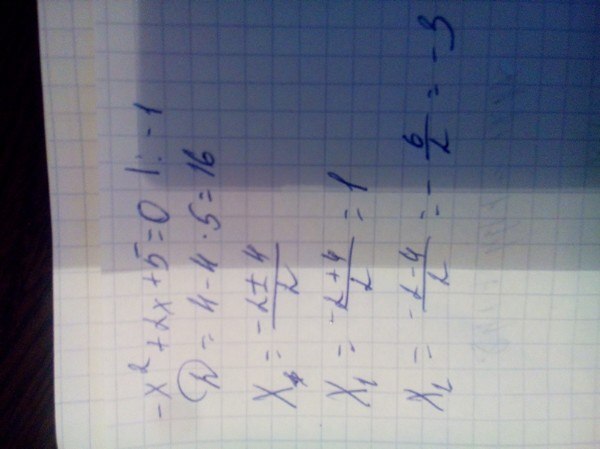 -x² + 2x + 5 = 0 | : -1
D = 4 - 4 · 5 = 16
X = (-2 ± 4)/2
X₁ = (-2 + 4)/2 = 1
X₂ = (-2 - 4)/2 = - 6/2 = -3